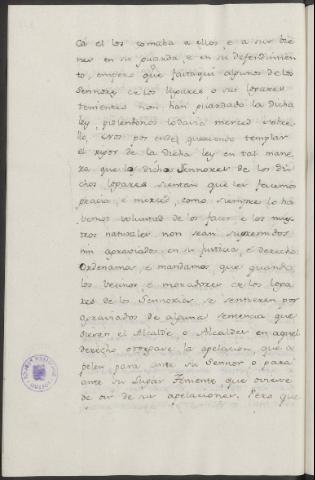 Ca él los tomaba a ellos, e a sus bie
nes en su guarda, e en su defendimien
to, empero que fasta aqui algunos de los
Sennores de los lugares o sus lugares
tenientes non han guardado la dicha
ley, pidiendonos todavia merced sobre
ello, Et nos por ende queriendo templar
el rigor de la dicha ley en tal mane
ra que los dichos Sennores de los di
chos logares sientan que les facemos
gracia, e merced, como siempre lo ha
bemos voluntad de los facer, e los nues
tros naturales non sean supremidos
nin agraviados en su justicia, é derecho
Ordenamos, é mandamos, que quando
los vecinos, é moradores de los loga
res de los Sennorios, se sentieren por
agraviados de alguna sentencia que
dieren el Alcalde, o Alcaldes en aquel
derecho otorgare la apelacion, que a
pelen para ante su Sennor o para
ante su Lugar Teniente, que oviere
de oir de sus apelaciones. Pero que